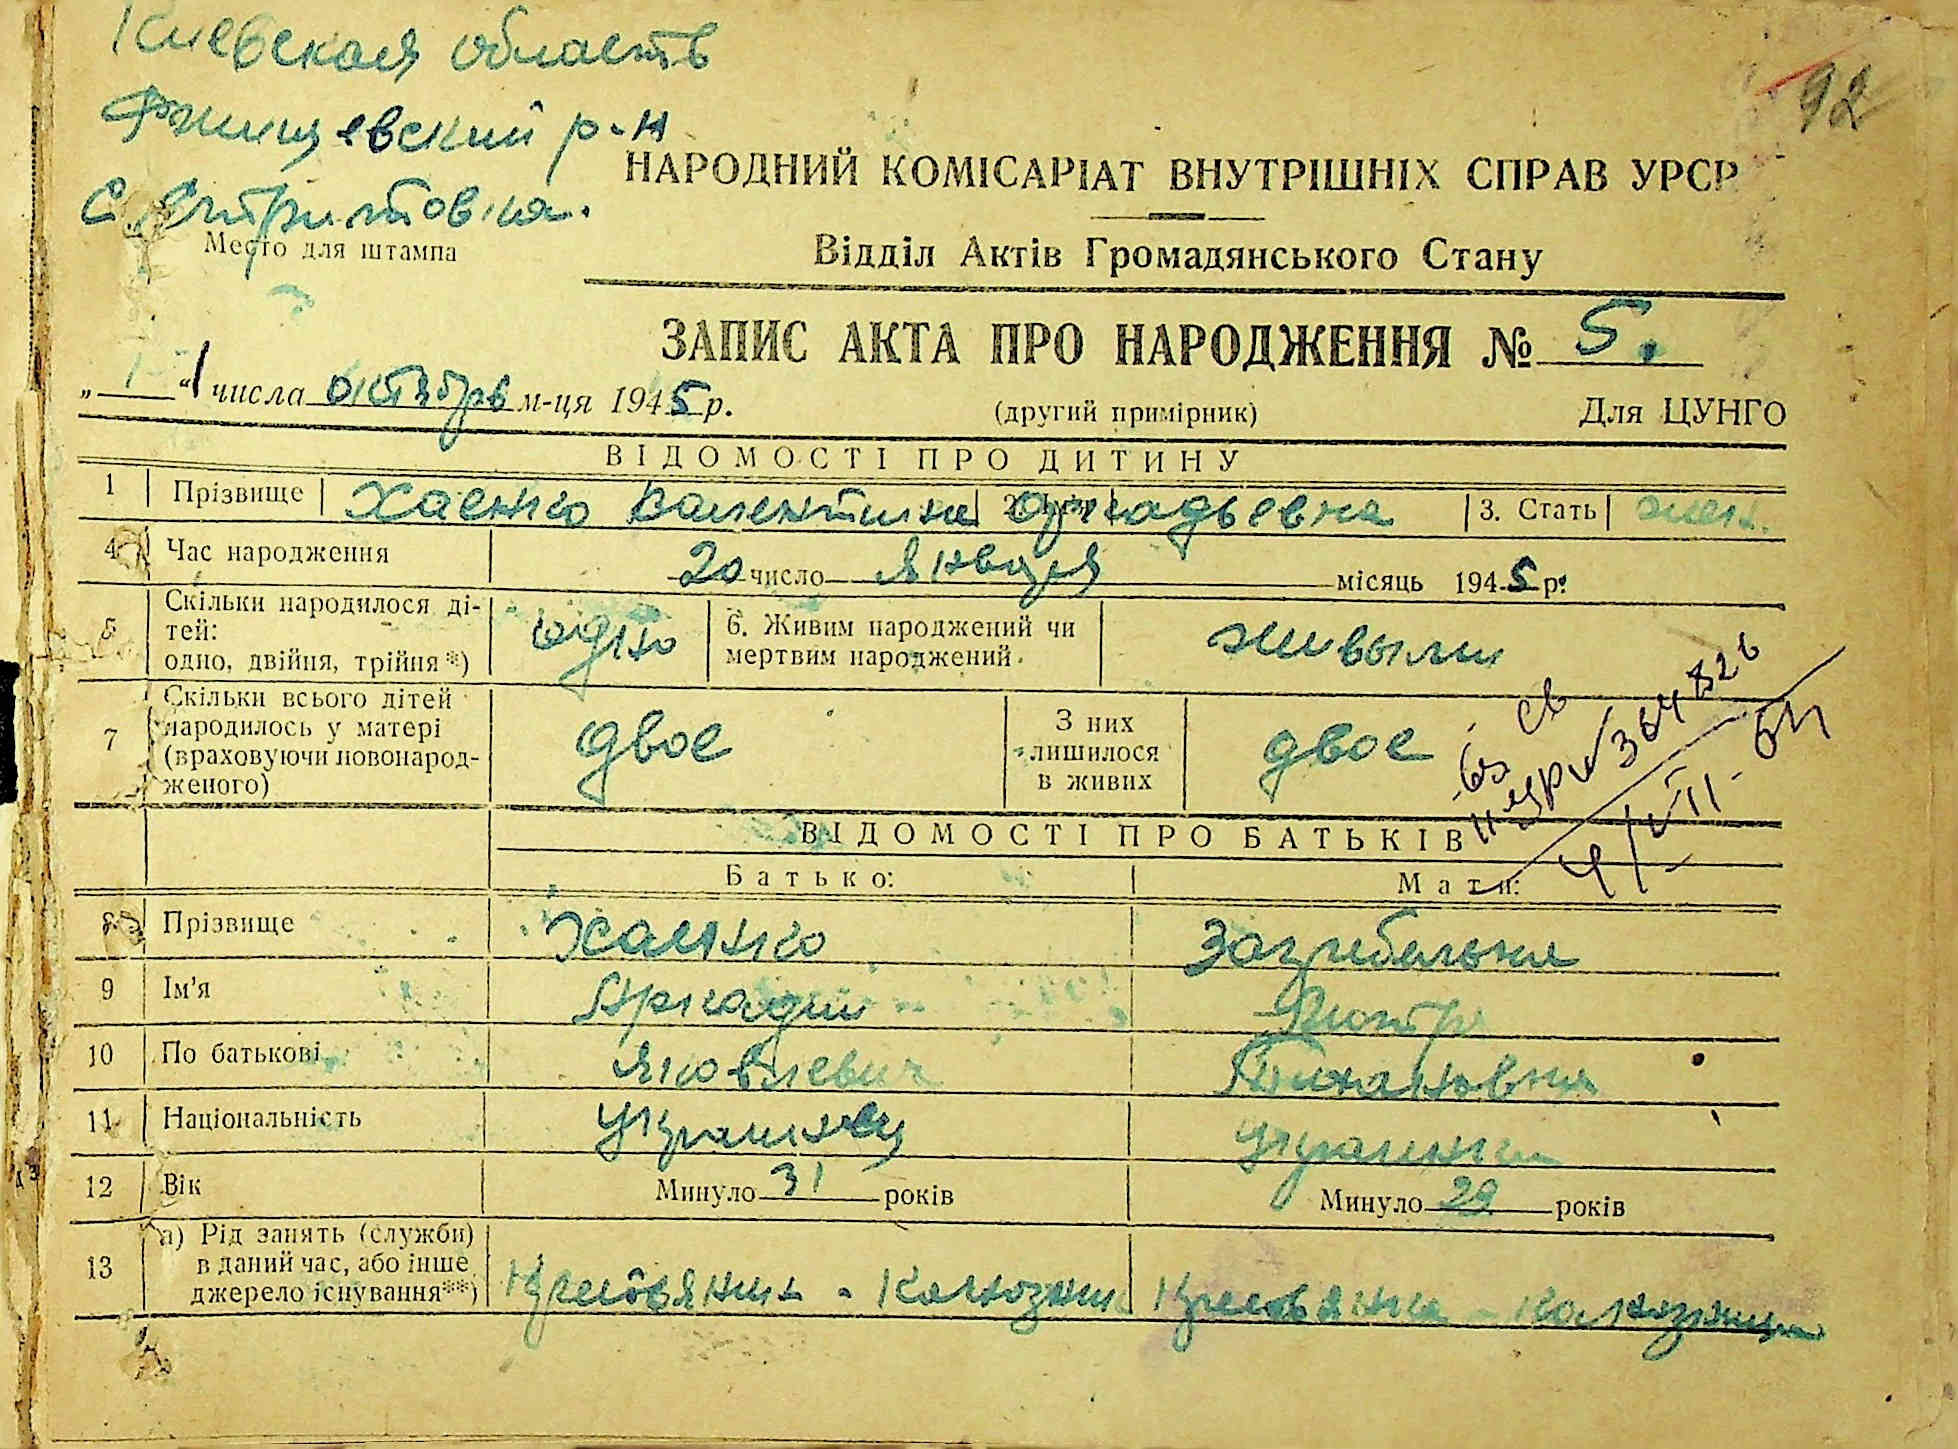 Киевская область
Ржищевский р-н
С.
Место для штампа
92
НАРОДНИЙ КОМІСАРІАТ ВНУТРІШНІХ СПРАВ УРСР
Відділ Актів Громадянського Стану
ЗАПИС АКТА ПРО НАРОДЖЕННЯ № 5.
„1“ числа октябрь м-ця 1945 р.
(другий примірник)
Для ЦУНГО
ВІДОМОСТІ ПРО ДИТИНУ
1 Прізвище Хаенко Валентина Аркадьевна 3. Стать жен.
4 Час народження 20 число января місяць 1945 р.
5 Скільки народилося ді-
тей:
одно, двійня, трійня*) одно
6. Живим народжений чи
мертвим народжений. живыми
7 Скільки всього дітей
народилось у матері
(враховуючи новонарод-
женого) двое
З них
лишилося
в живих двое
ВІДОМОСТІ ПРО БАТЬКІВ
Батько: Мати:
8 Прізвище Хаенко Загребельная
9 Ім'я Аркадий
10 По батькові Яковлевич
11 Національність украинец украинка
12 Вік Минуло 31 років Минуло 29 років
13 а) Рід занять (служби)
в даний час, або інше
джерело існування**) Крестьянин - колхозник Крестьянка - колхозница